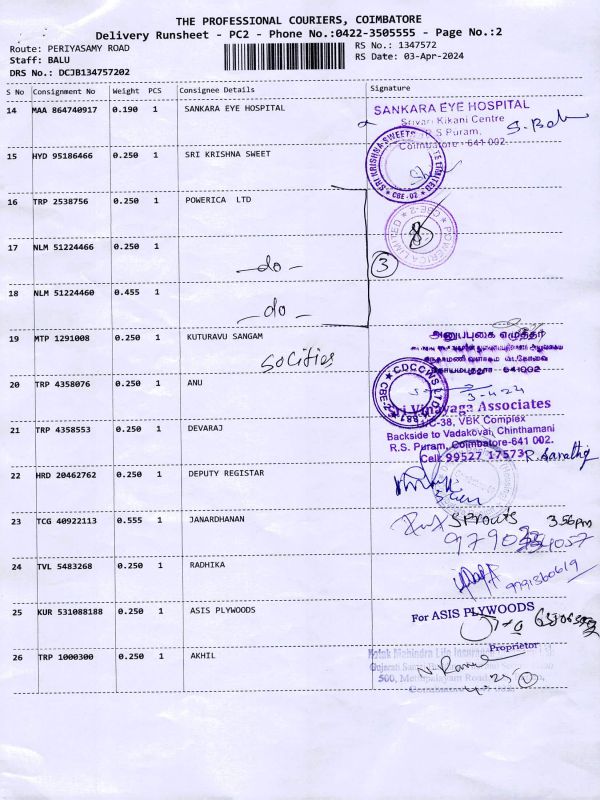 THE PROFESSIONAL COURIERS, COIMBATORE
Delivery Runsheet - PC2 - Phone No.:0422-3505555 - Page No.:2
Route: PERIYASAMY ROAD
RS No.: 1347572
Staff: BALU
RS Date: 03-Apr-2024
DRS No.: DCJB134757202
S No Consignment No Weight PCS Consignee Details Signature
14 MAA 864740917 0.190 1 SANKARA EYE HOSPITAL
SANKARA EYE HOSPITAL
Srivari Kikani Centre
R.S Puram,
Coimbatore - 641 002
15 HYD 95186466 0.250 1 SRI KRISHNA SWEET
SRI KRISHNA SWEETS PRIVATE LIMITED
CBE-02
16 TRP 2538756 0.250 1 POWERICA LTD
POWERICA LIMITED
CBE-2
17 NLM 51224466 0.250 1
-do-
3
18 NLM 51224460 0.455 1
-do-
19 MTP 1291008 0.250 1 KUTURAVU SANGAM
Socities
அனுப்புகை எழுத்தர்
20 TRP 4358076 0.250 1 ANU
3-4-24
Sri Vinayaga Associates
C-38, VBK Complex
21 TRP 4358553 0.250 1 DEVARAJ
Backside to Vadakovai, Chinthamani
R.S. Puram, Coimbatore-641 002.
Cell: 99527 17573
22 HRD 20462762 0.250 1 DEPUTY REGISTAR
23 TCG 40922113 0.555 1 JANARDHANAN
Sprouts 3.56pm
24 TVL 5483268 0.250 1 RADHIKA
25 KUR 531088188 0.250 1 ASIS PLYWOODS
For ASIS PLYWOODS
Proprietor
26 TRP 1000300 0.250 1 AKHIL
Kotak Mahindra Life Insurance